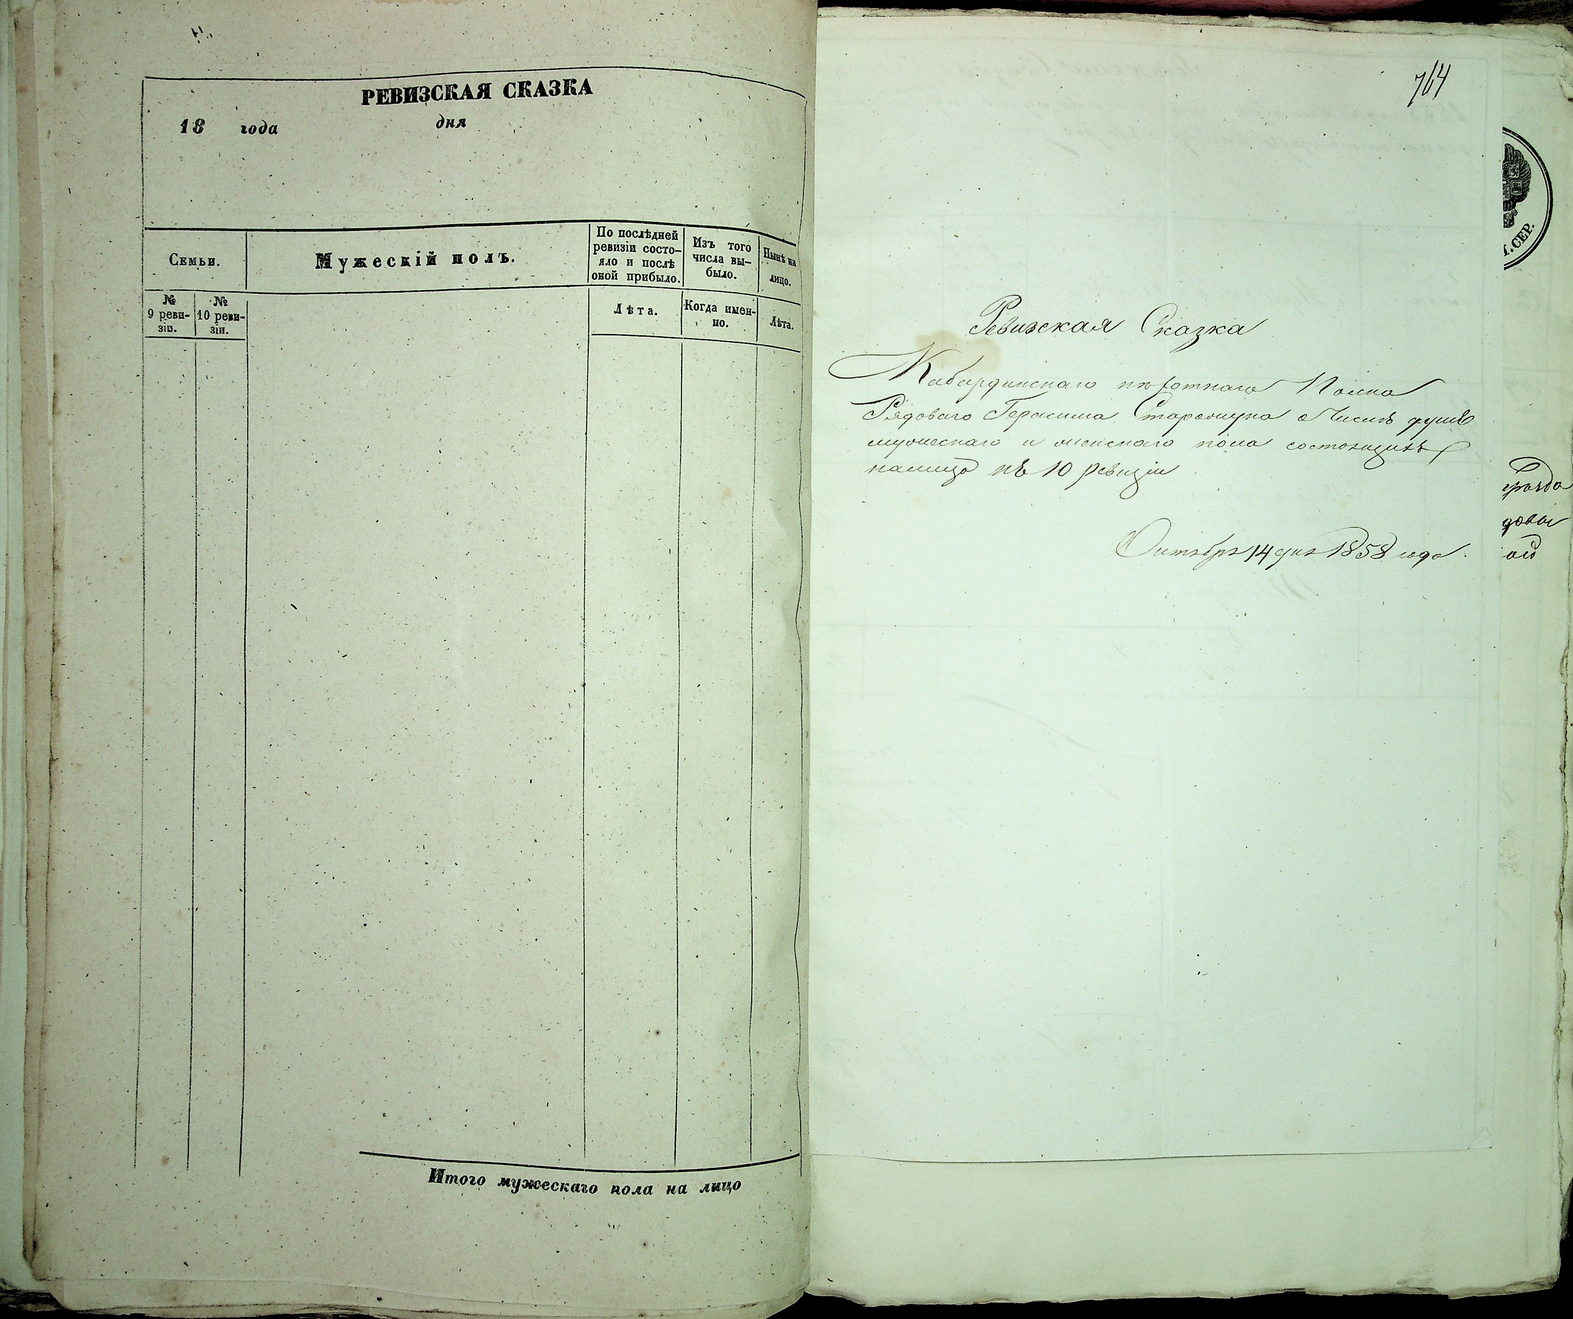 РЕВИЗСКАЯ СКАЗКА
18 года дня
Семьи.
Мужескій полъ.
По послѣдней
ревизіи состо-
яло и послѣ
оной прибыло.
Изъ того
числа вы-
было.
Нынѣ на
лицо.
№
9 реви-
зіи.
№
10 реви-
зіи.
Лѣта.
Когда имен-
но.
Лѣта.
Итого мужескаго пола на лицо
764
Ревизская Сказка
Кабардинскаго пѣхотнаго Полка
Рядоваго Герасима Старощука о числѣ душъ
мужескаго и женскаго пола состоящихъ
налицо по 10 ревизіи
Октября 14 дня 1858 года.
СЕР.